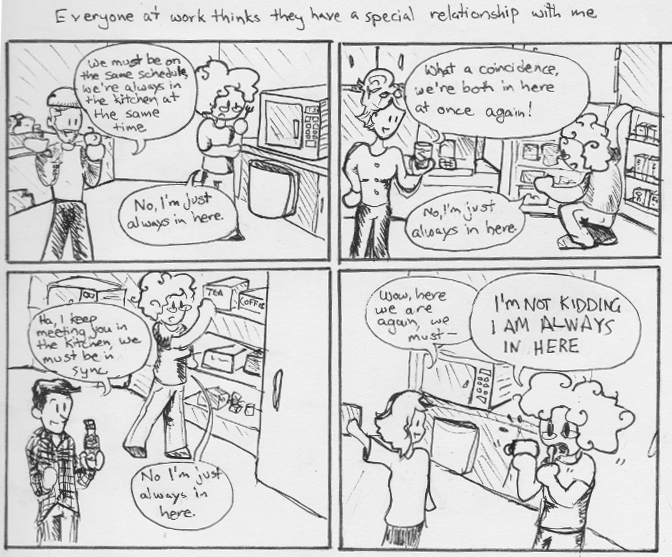 Everyone at work thinks they have a special relationship with me
We must be on
the same schedule,
we're always in
the kitchen at
the same
time
No, I'm just
always in here.
What a coincidence,
we're both in here
at once again!
No, I'm just
always in here.
Ha, I keep
meeting you in
the kitchen, we
must be in
sync
TEA
COFFEE
No I'm just
always in
here.
Wow, here
we are
again, we
must—
I'M NOT KIDDING
I AM ALWAYS
IN HERE